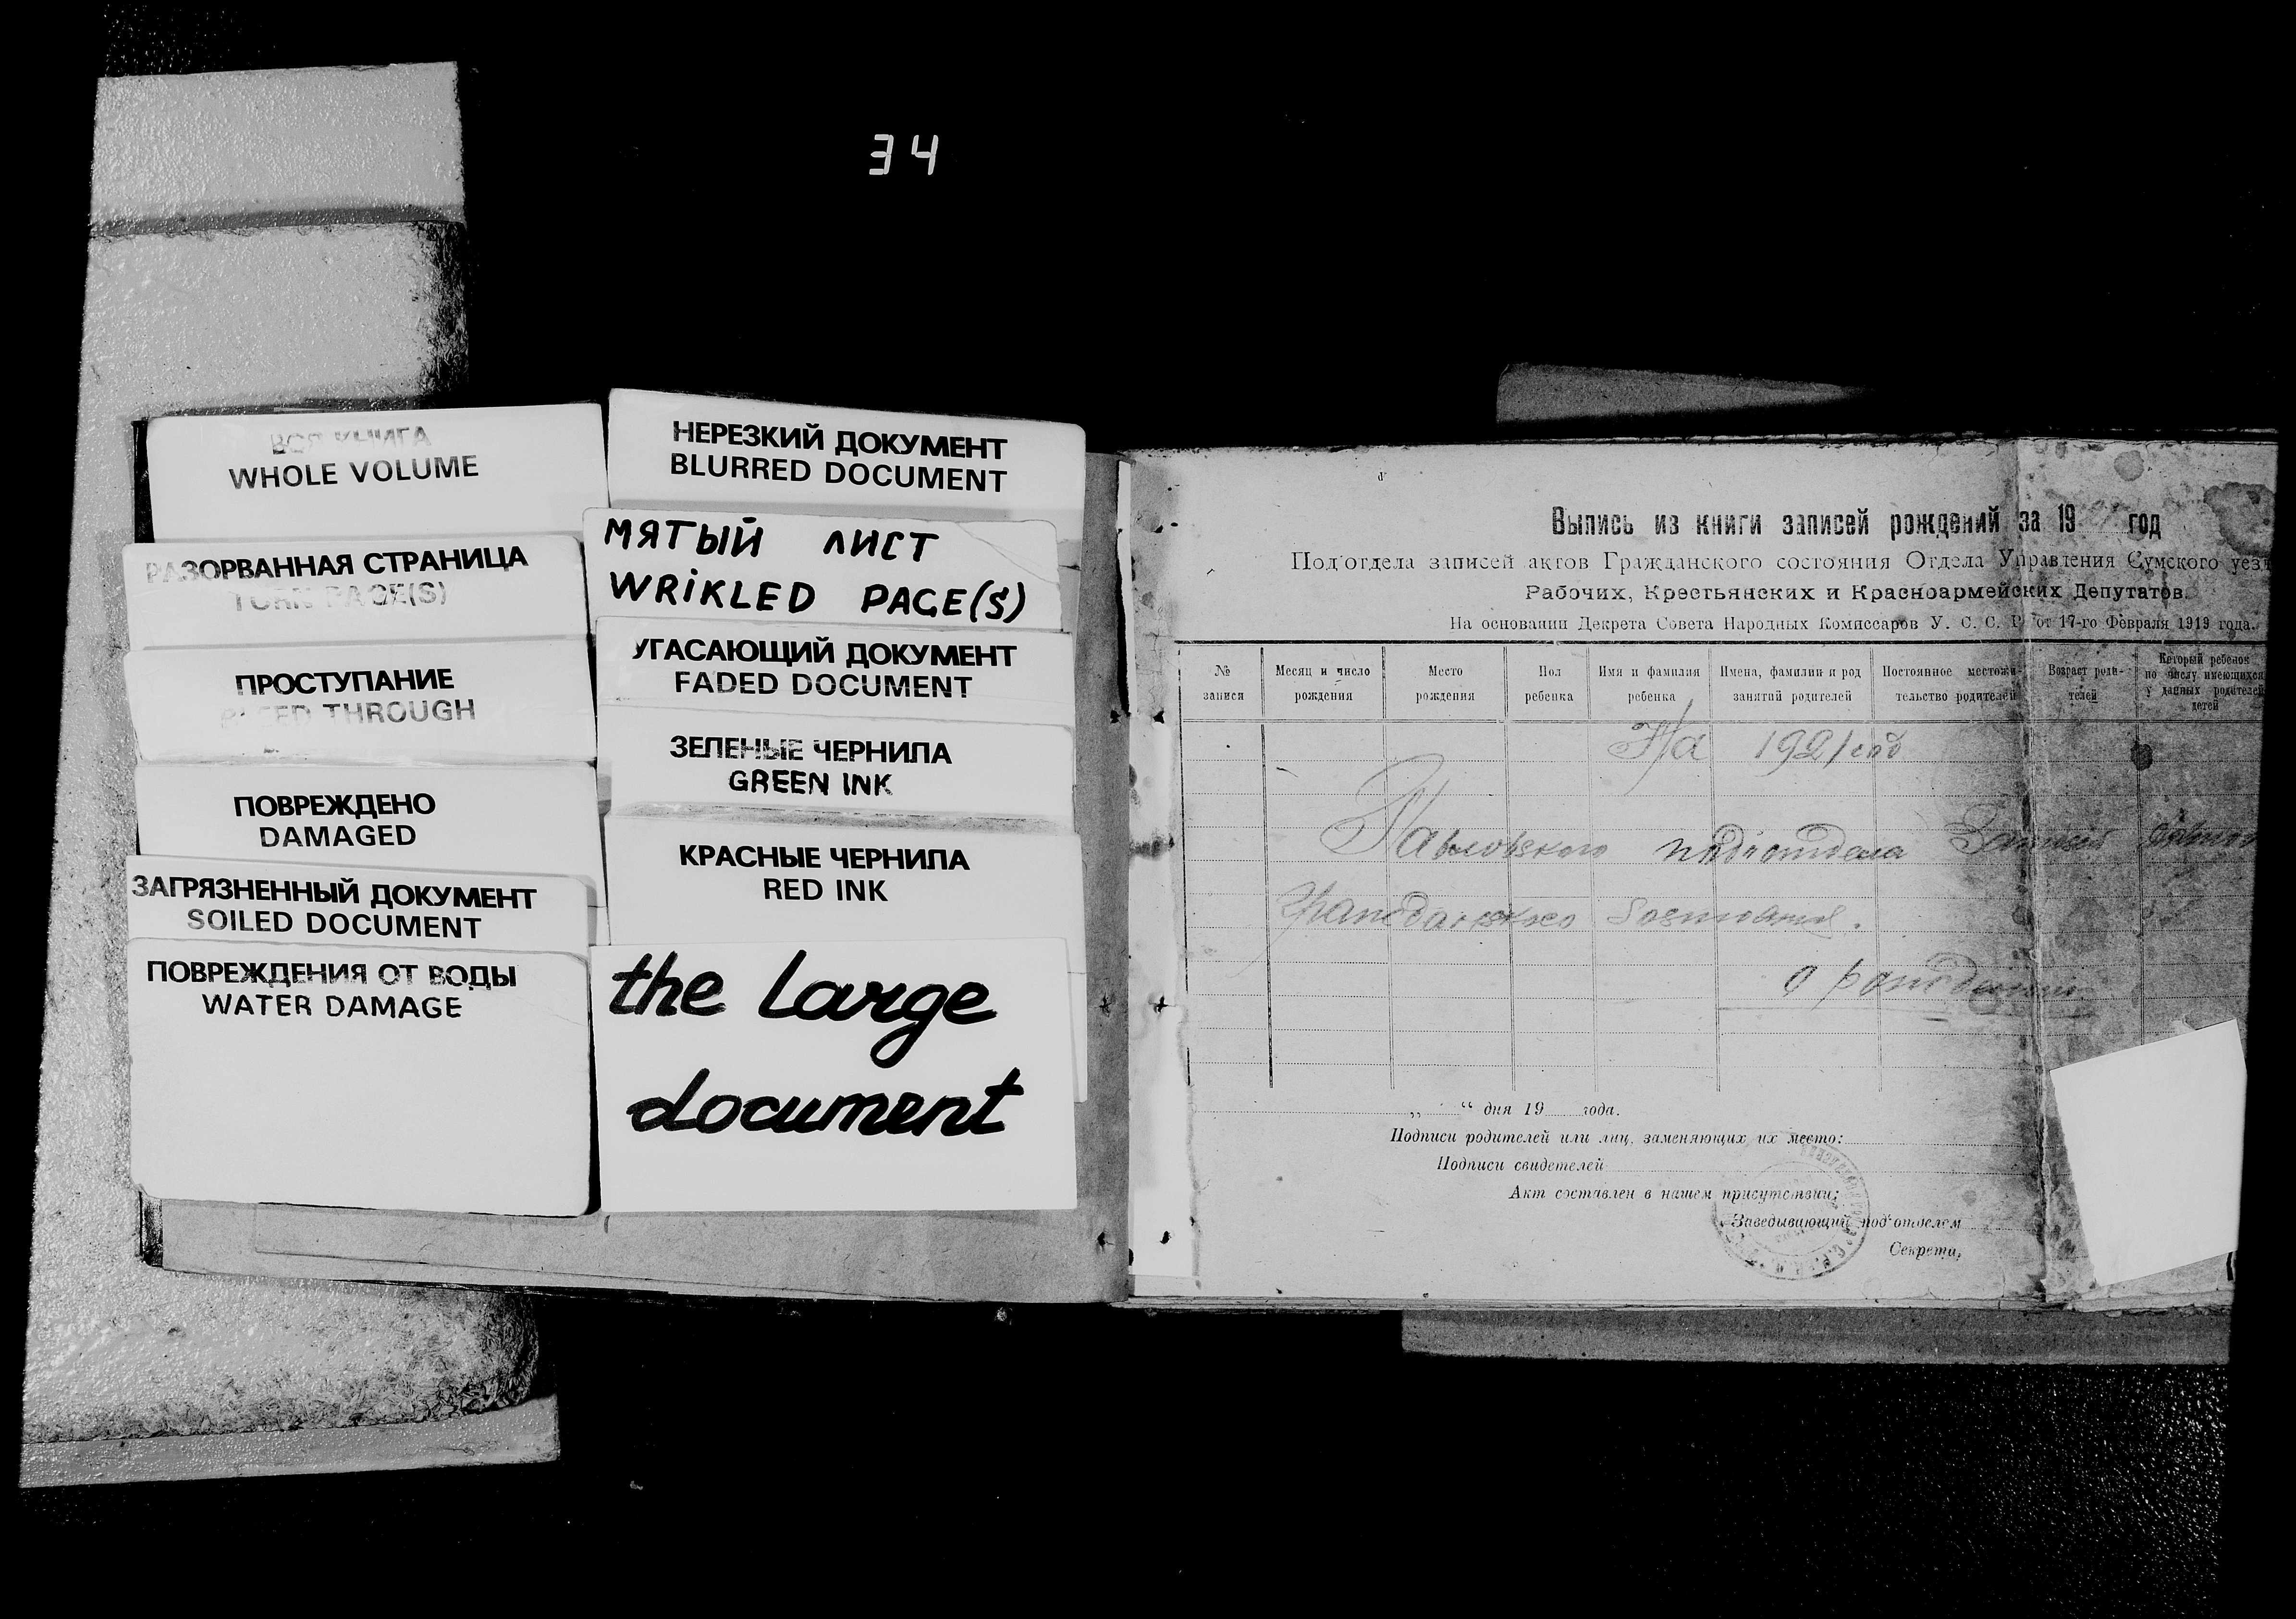 34
ВСЯ КНИГА
WHOLE VOLUME
РАЗОРВАННАЯ СТРАНИЦА
TORN PAGE(S)
ПРОСТУПАНИЕ
BLEED THROUGH
ПОВРЕЖДЕНО
DAMAGED
ЗАГРЯЗНЕННЫЙ ДОКУМЕНТ
SOILED DOCUMENT
ПОВРЕЖДЕНИЯ ОТ ВОДЫ
WATER DAMAGE
НЕРЕЗКИЙ ДОКУМЕНТ
BLURRED DOCUMENT
МЯТЫЙ ЛИСТ
WRIKLED PAGE(S)
УГАСАЮЩИЙ ДОКУМЕНТ
FADED DOCUMENT
ЗЕЛЕНЫЕ ЧЕРНИЛА
GREEN INK
КРАСНЫЕ ЧЕРНИЛА
RED INK
the large
document
Выпись из книги записей рождений за 1921 год
Под'отдела записей актов Гражданского состояния Отдела Управления Сумского уезд
Рабочих, Крестьянских и Красноармейских Депутатов.
На основании Декрета Совета Народных Комиссаров У. С. С. Р. от 17-го Февраля 1919 года.
№ записи
Месяц и число рождения
Место рождения
Пол ребенка
Имя и фамилия ребенка
Имена, фамилии и род занятий родителей
Постоянное местожительство родителей
Возраст родителей
Который ребенок по числу имеющихся у данных родителей детей
На 1921 год
Павловского подотдела Записей актов
Гражданского Состояния.
о рождении
„ “ дня 19 года.
Подписи родителей или лиц, заменяющих их место:
Подписи свидетелей
Акт составлен в нашем присутствии:
Заведывающий под'отделом
Секрета